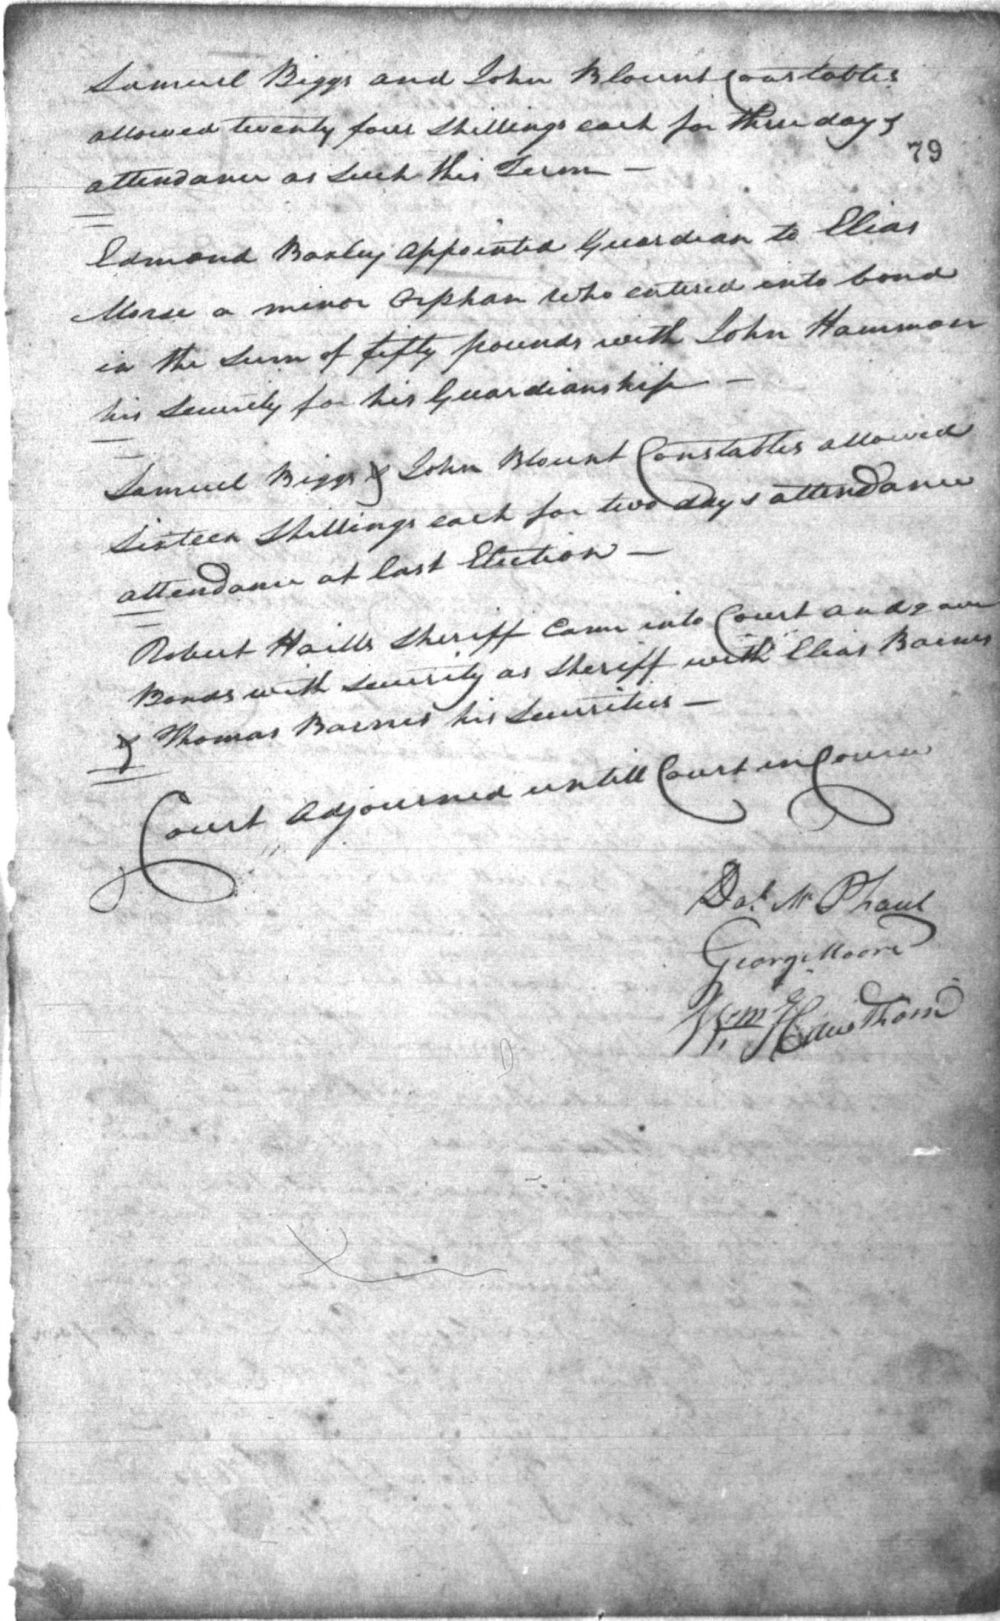 Samuel Biggs and John Blount Constables
allowed twenty four Shillings each for three days
79
attendance as Such this Term —
Edmond Baxley appointed Guardian to Elias
Morse a minor Orphan who entered into bond
in the Sum of fifty pounds with John Hammon
his Security for his Guardianship —
Samuel Biggs & John Blount Constables allowed
Sixteen Shillings each for two days attendance
attendance at last Election —
Robert Haills Sheriff Came into Court and gave
Bonds with Security as Sheriff with Elias Barnes
& Thomas Barnes his Securities —
Court Adjourned untill Court in Course
Dal. McPhaul
George Moore
Wm. Hawthorn